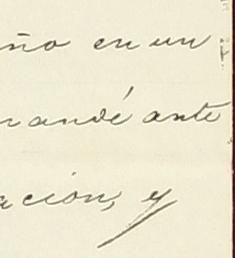 ño en un
mandé ante
ación, y